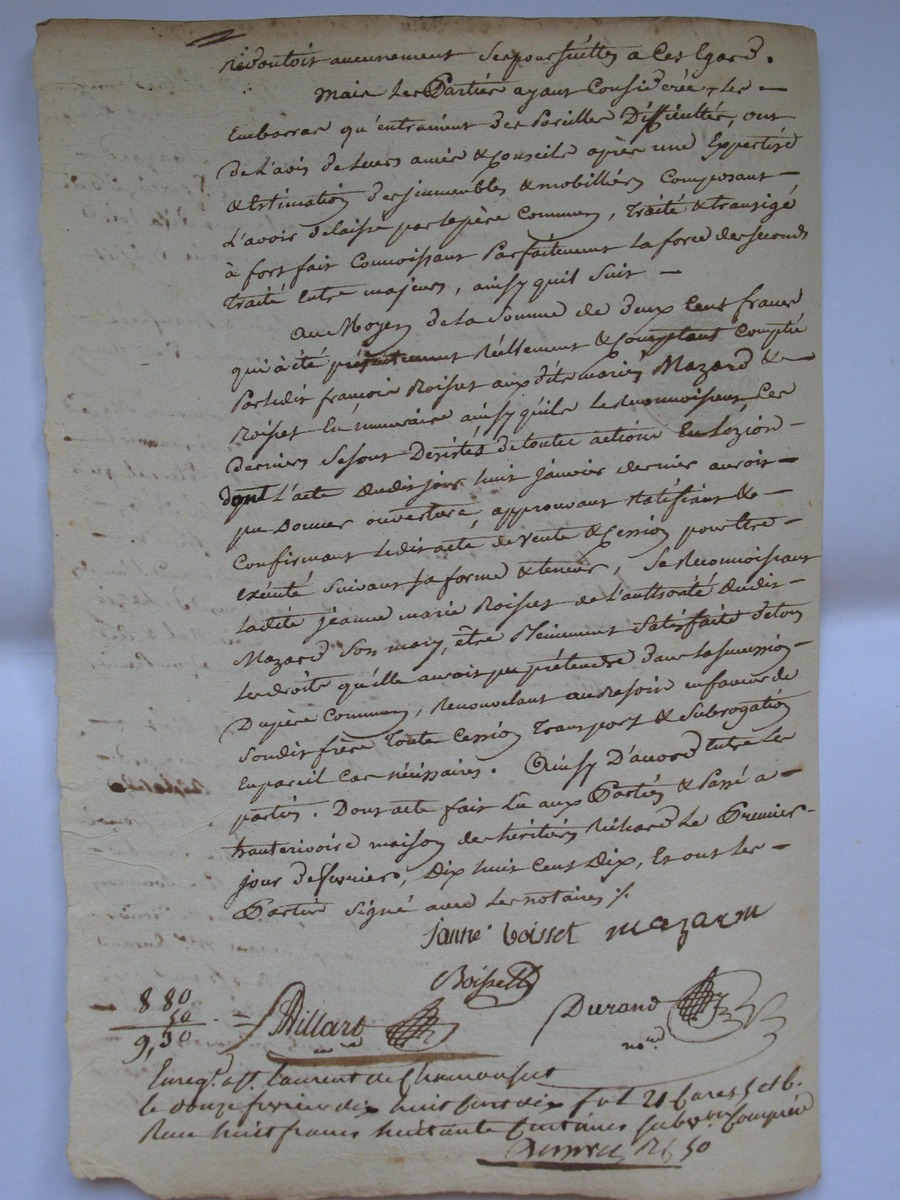 redoutoit aucunement ses poursuittes a cet Egard.
Mais les Parties ayant Considéré, les
Embarras qu'entrainent des Pareilles Difficultés, ont
de L'avis de leurs amis & Conseils après une Expertise
& Estimation des immeubles & mobilliers Composant
L'avoir délaissé par le père Commun, traité & transigé
à fort fait Connoissant Parfaitement la force des seconds
traités Entre majeurs, ainsy quil suit
Au Moyen de la Somme de deux Cent francs
qui à été présentement Réellement & Comptant Comptée
Par ledit françois Boisset aux dits mariés Mazard &
Boisset En numeraire ainsy qu'ils le Reconnoissent, Ces
Derniers se sont Désistés de toutes actions En Lézion
dont L'acte dudit jour huit janvier dernier auroit
pu Donner ouverture, approuvant Ratifiant &
Confirmant ledit acte de vente & Cession pour être
exécuté suivant sa forme & teneur, se Reconnoissant
Ladite jeanne marie Boisset de L'authorité dudit
Mazard Son mary, être Pleinement Satisfaite de tous
les droits qu'elle auroit pu prétendre dans la succession
Du père Commun, Renouvelant au besoin en faveur de
Sondit frère toute Cession, transport & Subrogation
En pareil Cas nécessaires. Ainsy D'accord Entre les
parties. Dont acte fait Lû aux Parties & Passé a
maison des héritiers Richard le Premier
jour de fevrier, Dix huit Cent Dix, Et ont les
Parties signé avec les notaires ./.
janne boisset mazard
Boisset
Durand
8 80
50
9,30
Billard
nore
Enregt. a St. Laurent de Chamousset
le douze fevrier dix huit cent dix fol 21 Cases 5 et 6.
Recu huit francs huitante Centimes subvon Comprise